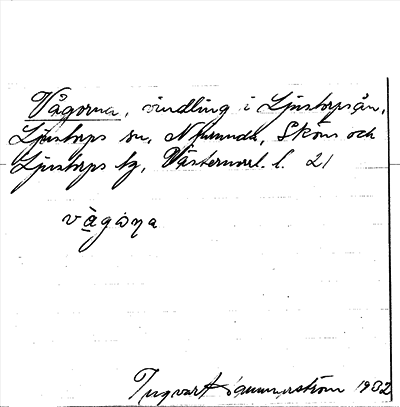 Vågorna, vindling i Ljustorpsån,
Ljustorps sn, Njurunda, Sköns och
Ljustorps tg, Västernorrl. l. 21
vàgo̤ṇa
Ingvar 1932